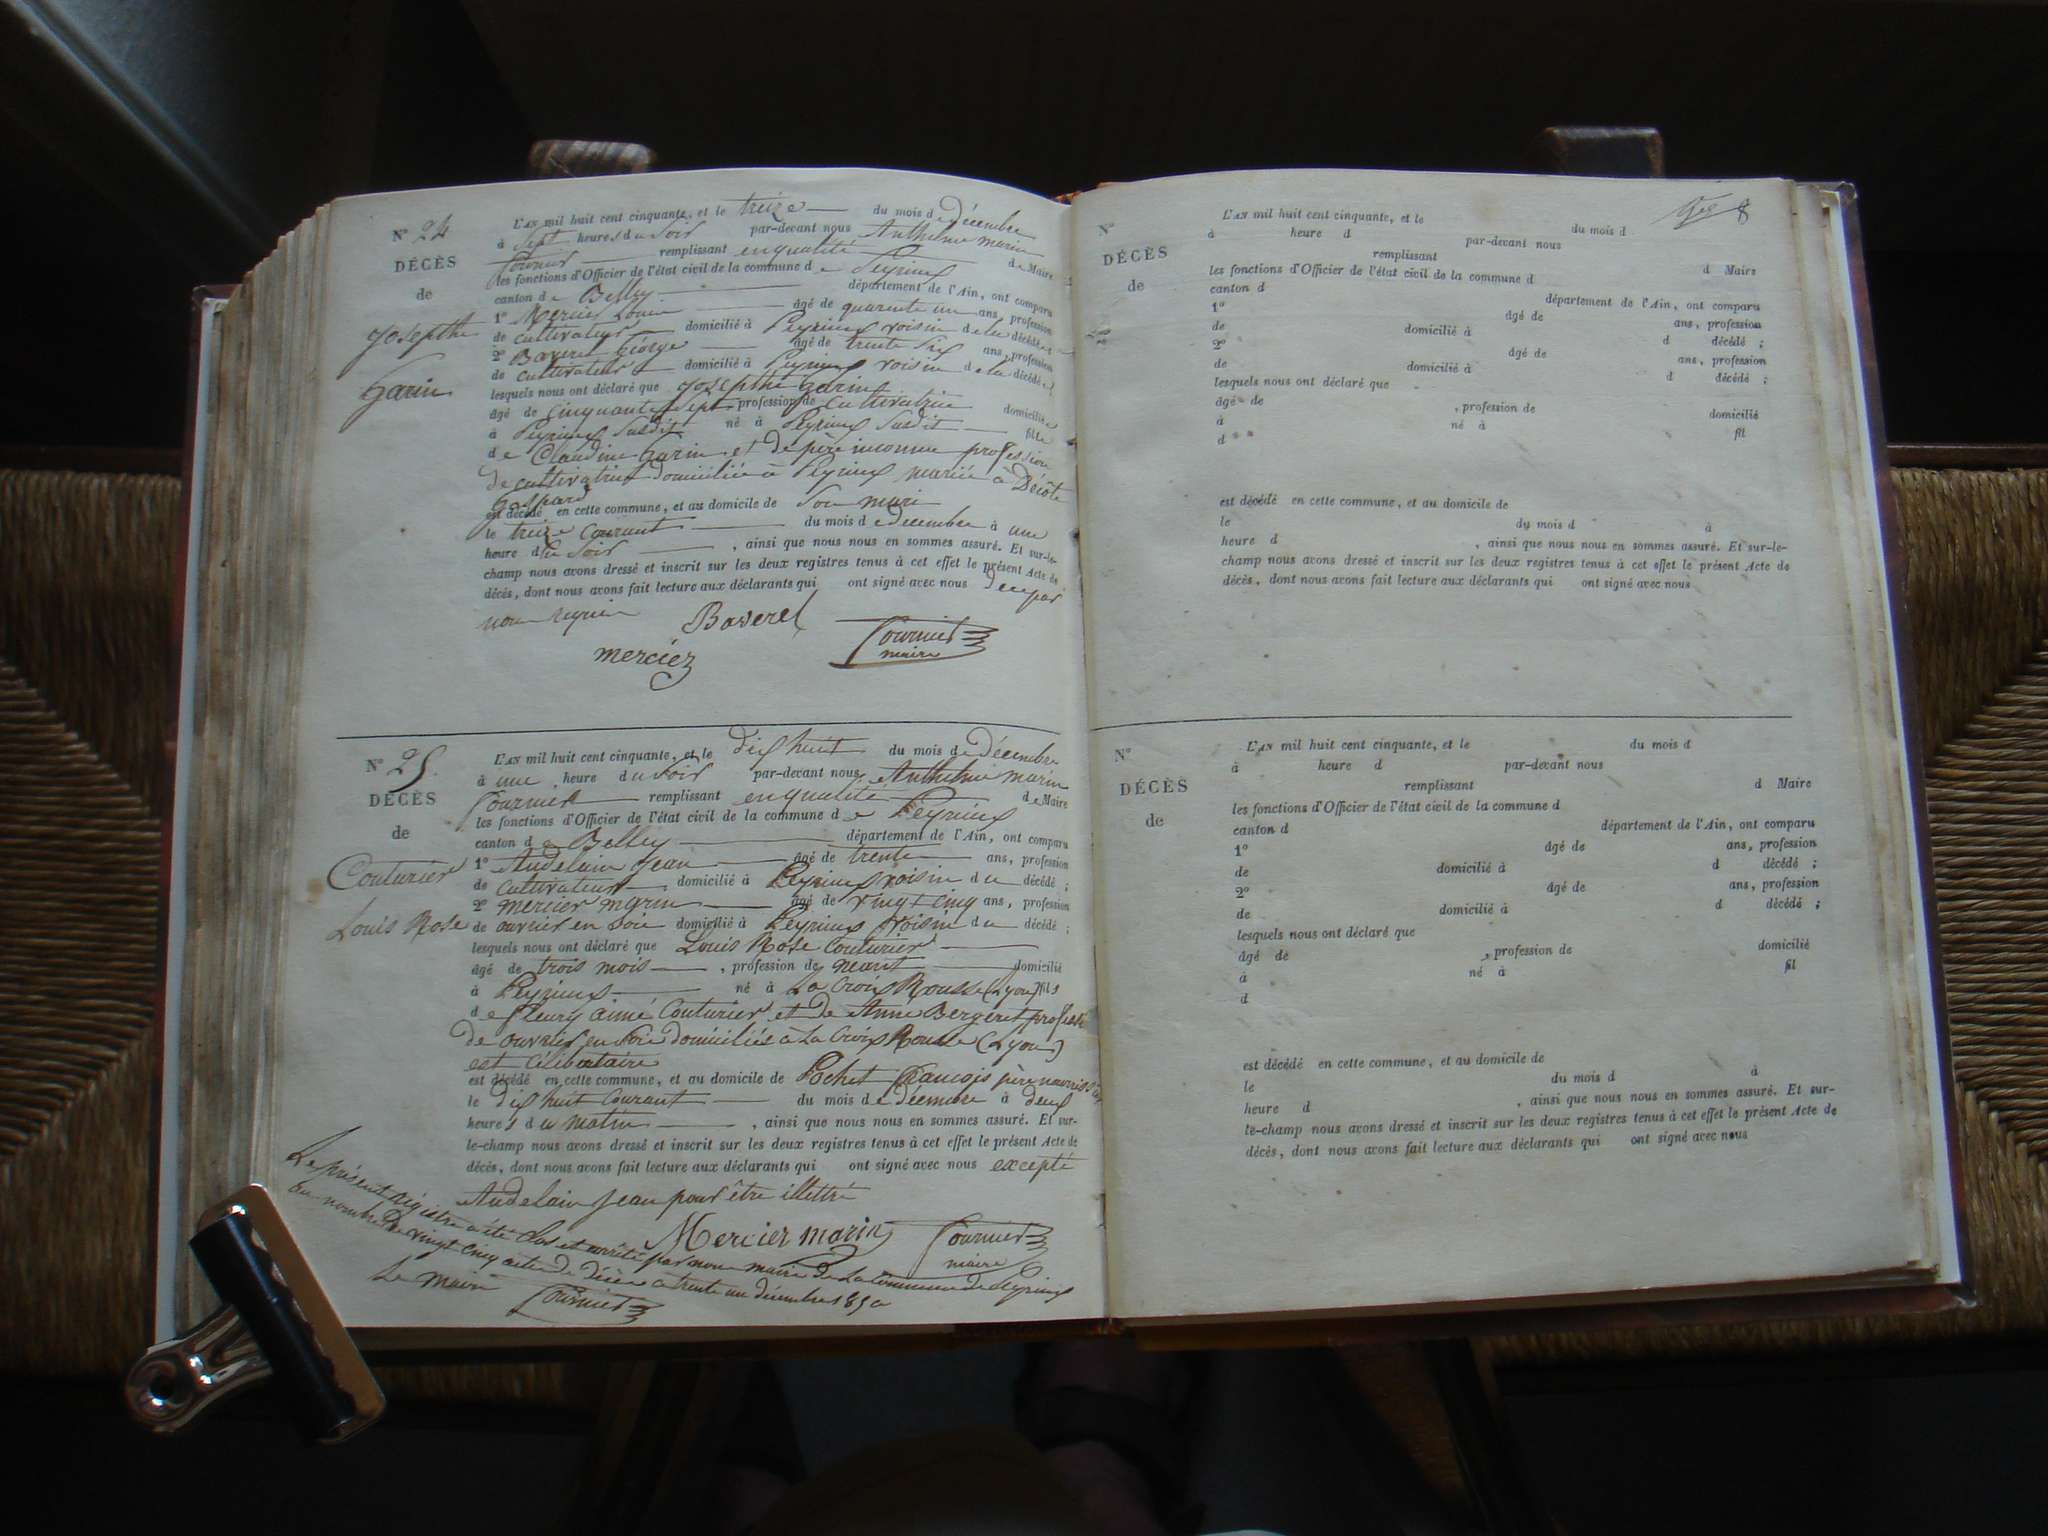 Nº 24
DÉCÈS
de
Josephte
Garin
L'AN mil huit cent cinquante, et le treize du mois de Décembre
à Sept heures du Soir par-devant nous Anthelme Marin
Fournier remplissant en qualité de Maire
les fonctions d'Officier de l'état civil de la commune de Peyrieux
canton de Belley département de l'Ain, ont comparu
1º Mercier Louis âgé de quarante un ans, profession
de cultivateur domicilié à Peyrieux voisin de la décédée ;
2º Baveret George âgé de trente Six ans, profession
de cultivateur domicilié à Peyrieux voisin de la décédée ;
lesquels nous ont déclaré que Josephte Garin
âgé de cinquante Sept profession de cultivatrice domiciliée
à Peyrieux Susdit né à Peyrieux Susdit fille
de Claudine Garin et de père inconnu profession
de cultivatrice domiciliée à Peyrieux mariée à Décôte
Gaspard
est décédé en cette commune, et au domicile de Son mari
le treize Courant du mois de décembre à une
heure du Soir , ainsi que nous nous en sommes assuré. Et sur-le-
champ nous avons dressé et inscrit sur les deux registres tenus à cet effet le présent Acte de
décès, dont nous avons fait lecture aux déclarants qui ont signé avec nous
Baveret
mercier
Fournier
maire
Nº 25.
DÉCÈS
de
Couturier
Louis Rose
L'AN mil huit cent cinquante, et le dix huit du mois de Décembre
à une heure du Soir par-devant nous Anthelme Marin
Fournier remplissant en qualité de Maire
les fonctions d'Officier de l'état civil de la commune de Peyrieux
canton de Belley département de l'Ain, ont comparu
1º Andelain Jean âgé de trente ans, profession
de cultivateur domicilié à Peyrieux voisin du décédé ;
2º mercier marin âgé de vingt cinq ans, profession
de ouvrier en Soie domicilié à Peyrieux voisin du décédé ;
lesquels nous ont déclaré que Louis Rose Couturier
âgé de trois mois , profession de néant domicilié
à Peyrieux né à La Croix Rousse (Lyon) fils
de fleury aimé Couturier et de Anne Bergeret profession
de ouvrier en Soie domiciliés à La Croix Rousse (Lyon)
est Célibataire
est décédé en cette commune, et au domicile de Pochet François père nourricier
le dix huit Courant du mois de décembre à deux
heures du matin , ainsi que nous nous en sommes assuré. Et sur-
le-champ nous avons dressé et inscrit sur les deux registres tenus à cet effet le présent Acte de
décès, dont nous avons fait lecture aux déclarants qui ont signé avec nous excepté
Andelain Jean pour être illettré
Mercier marin
Fournier
maire
Le présent régistre a été clos et arrêté par nous maire de La Commune de Peyrieux
au nombre de vingt cinq actes de décès a trente un décembre 1850
Le Maire
Fournier
8
Nº
DÉCÈS
de
L'AN mil huit cent cinquante, et le du mois d
à heure d par-devant nous
remplissant d Maire
les fonctions d'Officier de l'état civil de la commune d
canton d département de l'Ain, ont comparu
1º âgé de ans, profession
de domicilié à d décédé ;
2º âgé de ans, profession
de domicilié à d décédé ;
lesquels nous ont déclaré que
âgé de , profession de domicilié
à né à fil
d
est décédé en cette commune, et au domicile de
le du mois d à
heure d , ainsi que nous nous en sommes assuré. Et sur-le-
champ nous avons dressé et inscrit sur les deux registres tenus à cet effet le présent Acte de
décès, dont nous avons fait lecture aux déclarants qui ont signé avec nous
Nº
DÉCÈS
de
L'AN mil huit cent cinquante, et le du mois d
à heure d par-devant nous
remplissant d Maire
les fonctions d'Officier de l'état civil de la commune d
canton d département de l'Ain, ont comparu
1º âgé de ans, profession
de domicilié à d décédé ;
2º âgé de ans, profession
de domicilié à d décédé ;
lesquels nous ont déclaré que
âgé de , profession de domicilié
à né à fil
d
est décédé en cette commune, et au domicile de
le du mois d à
heure d , ainsi que nous nous en sommes assuré. Et sur-
le-champ nous avons dressé et inscrit sur les deux registres tenus à cet effet le présent Acte de
décès, dont nous avons fait lecture aux déclarants qui ont signé avec nous